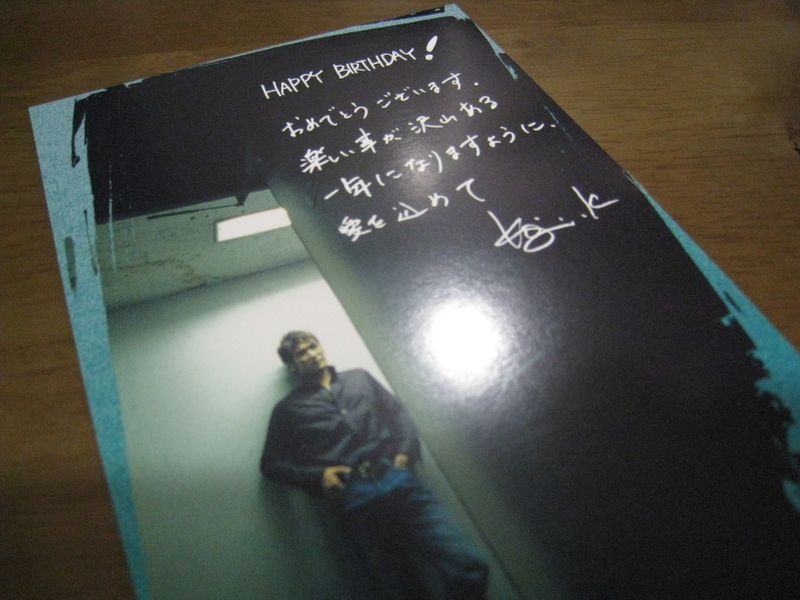 HAPPY BIRTHDAY!
おめでとうございます.
楽しい事が沢山ある
一年になりますように.
愛を込めて